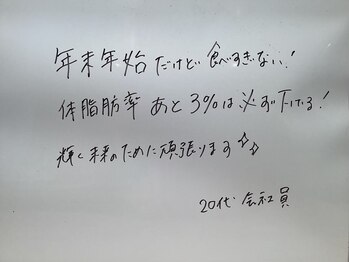 年末年始だけど食べすぎない!
体脂肪率あと3%は必ず下げる!
輝く未来のために頑張ります☆☆
20代 会社員